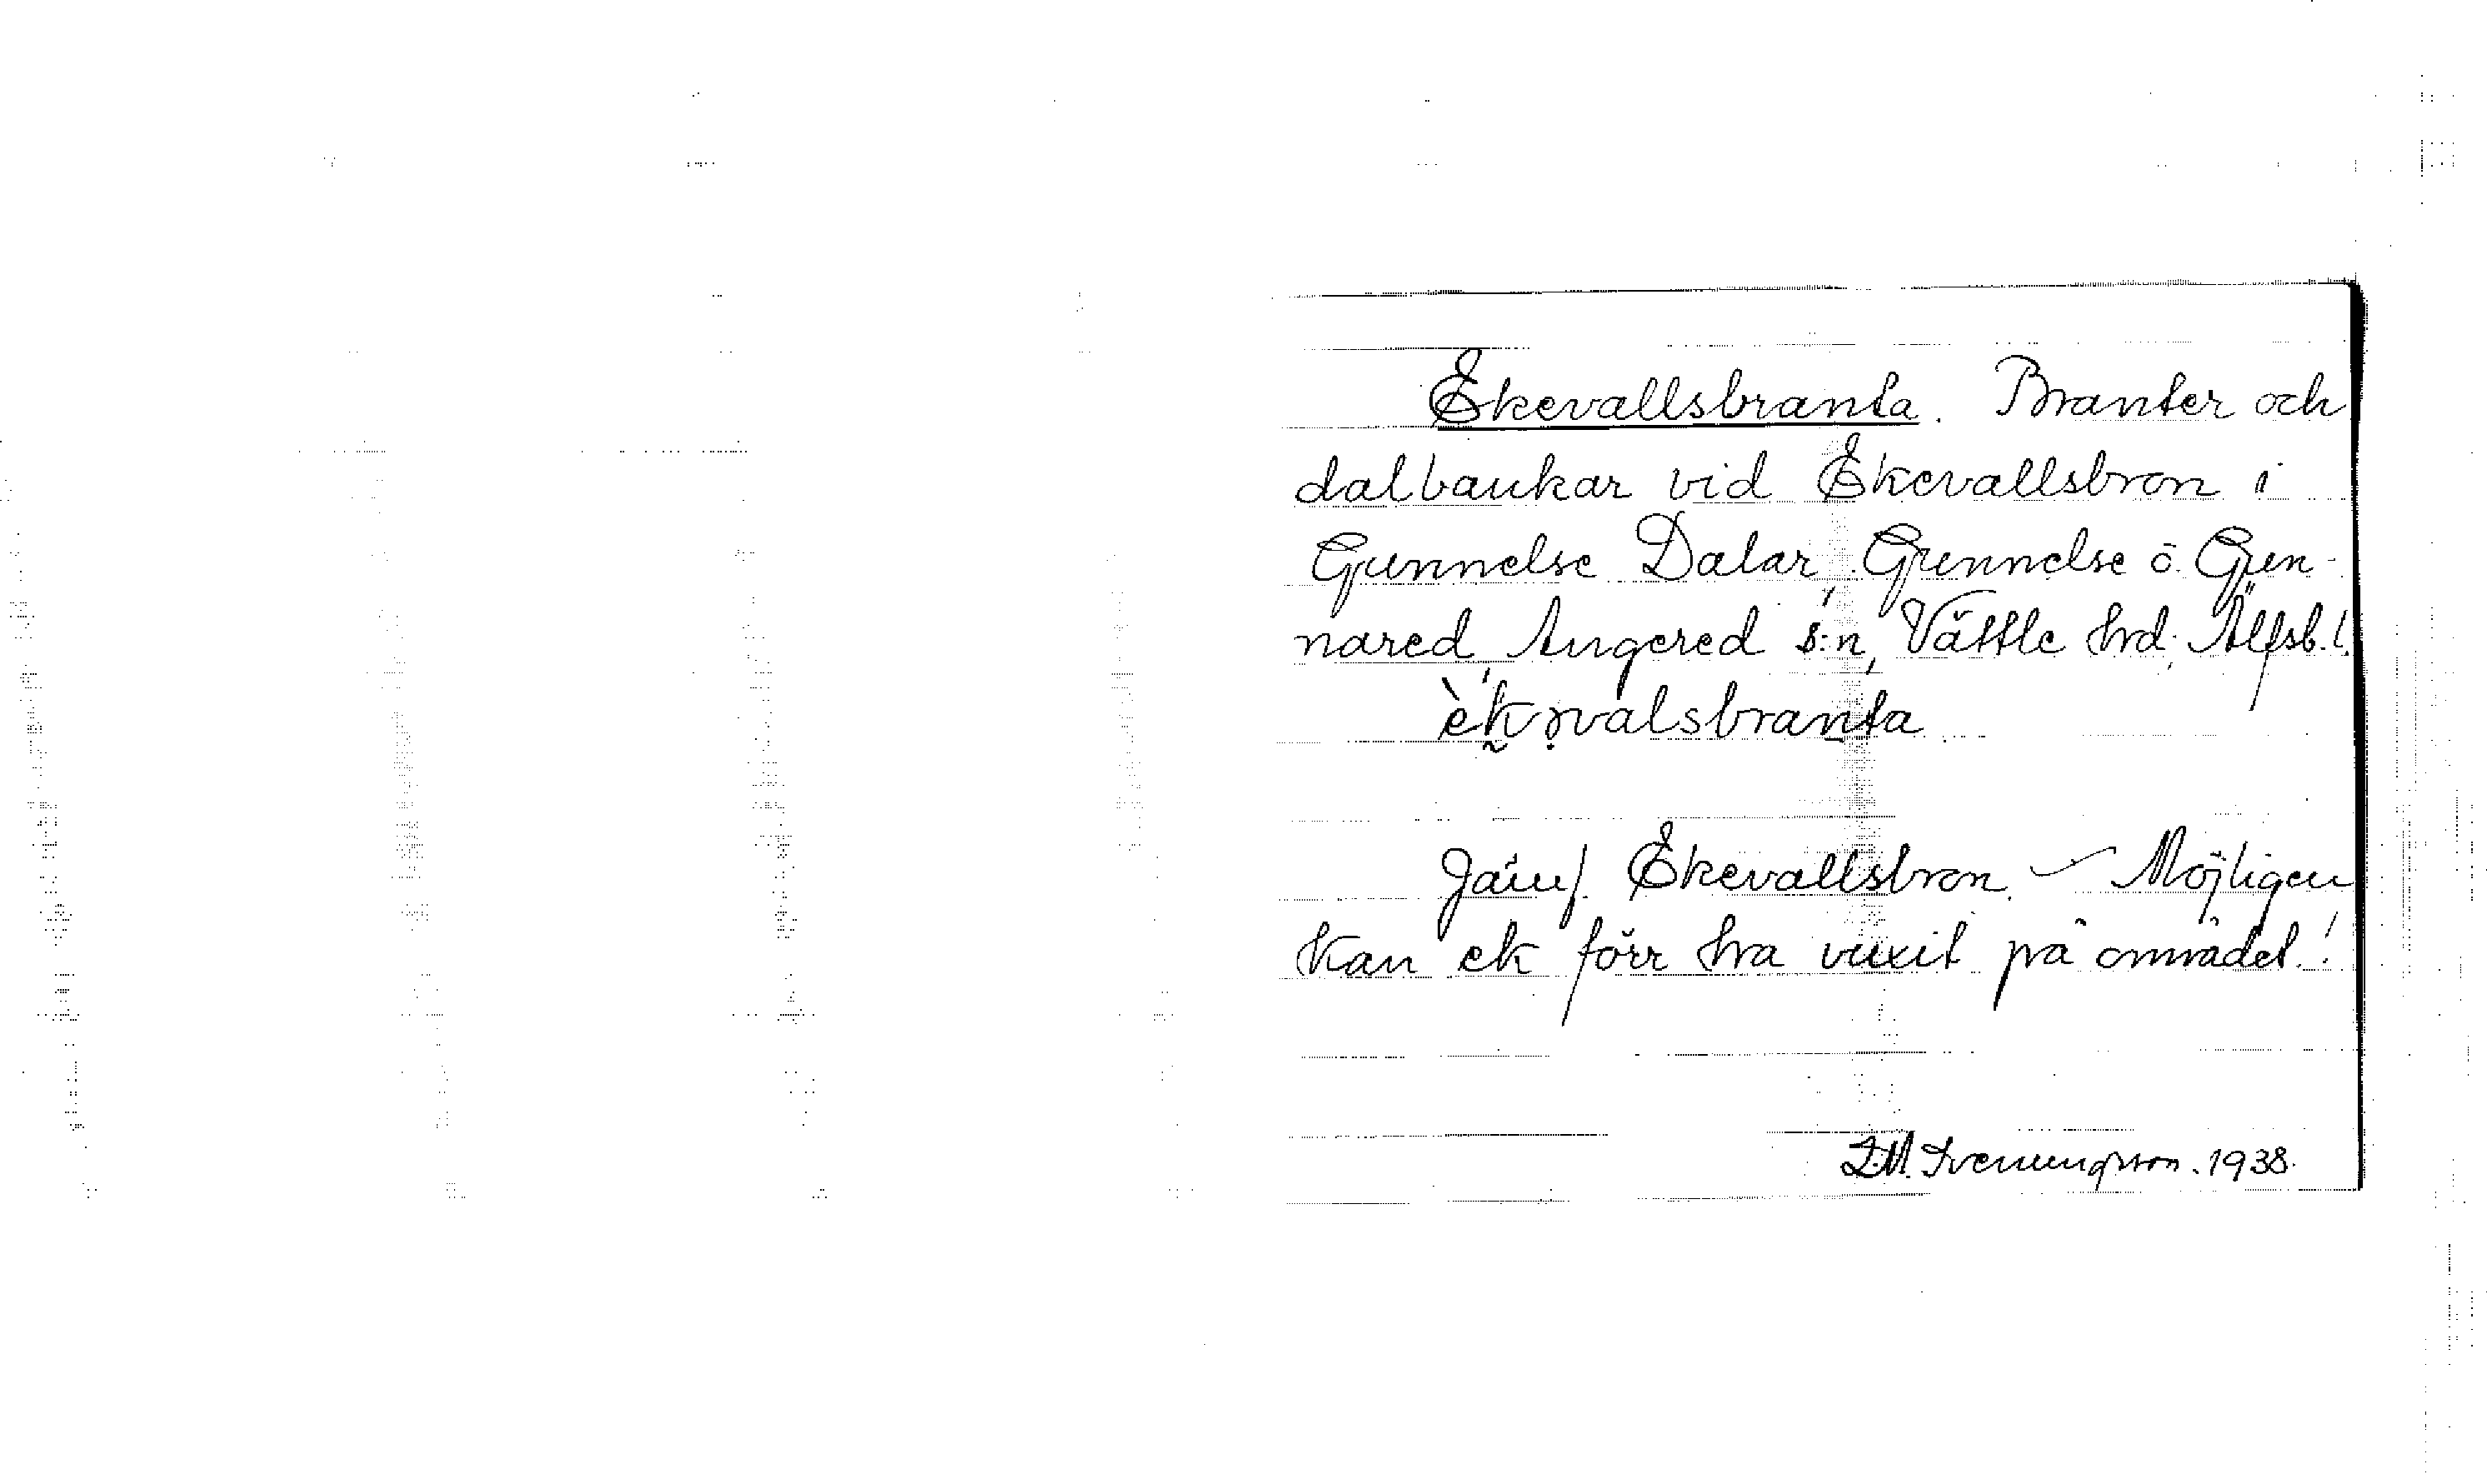 Ekevallsbranta. Branter och
dalbankar vid Ekevallsbron i
Gunnelse Dalar, Gunnelse o. Gun-
nared, Angered s:n, Vättle hrd, Älfsb. l.
Jämf. Ekevallsbron. – Möjligen
kan ek förr ha vuxit på området!
1938.